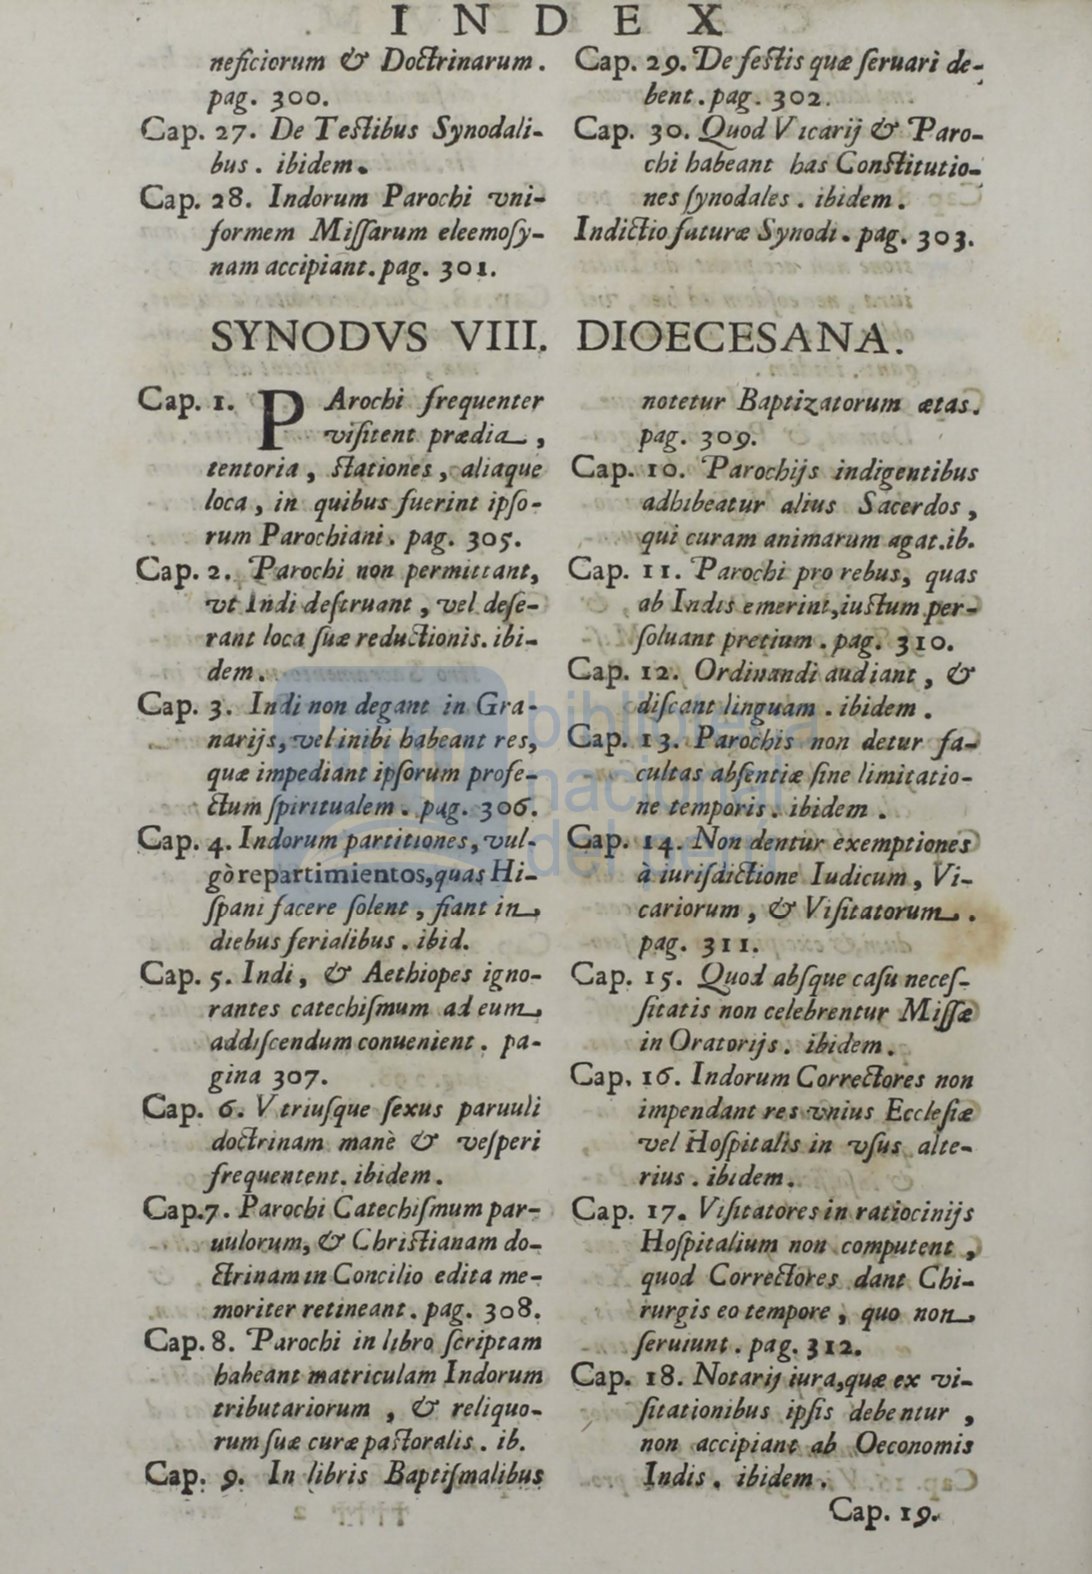 INDEX
neficiorum & Doctrinarum.
pag. 300.
Cap. 27. De Testibus Synodali-
bus. ibidem.
Cap. 28. Indorum Parochi vni-
formem Missarum eleemosy-
nam accipiant. pag. 301.
Cap. 29. De festis quæ seruari de-
bent. pag. 302.
Cap. 30. Quod Vicarij & Paro-
chi habeant has Constitutio-
nes synodales. ibidem.
Indictio futuræ Synodi. pag. 303.
SYNODVS VIII. DIOECESANA.
Cap. 1. PArochi frequenter
visitent prædia,
tentoria, stationes, aliaque
loca, in quibus fuerint ipso-
rum Parochiani. pag. 305.
Cap. 2. Parochi non permittant,
vt Indi destruant, vel dese-
rant loca suæ reductionis. ibi-
dem.
Cap. 3. Indi non degant in Gra-
narijs, vel inibi habeant res,
quæ impediant ipsorum profe-
ctum spiritualem. pag. 306.
Cap. 4. Indorum partitiones, vul-
gò repartimientos, quas Hi-
spani facere solent, fiant in
diebus ferialibus. ibid.
Cap. 5. Indi, & Aethiopes igno-
rantes catechismum ad eum
addiscendum conuenient. pa-
gina 307.
Cap. 6. Vtriusque sexus paruuli
doctrinam manè & vesperi
frequentent. ibidem.
Cap. 7. Parochi Catechismum par-
uulorum, & Christianam do-
ctrinam in Concilio edita me-
moriter retineant. pag. 308.
Cap. 8. Parochi in libro scriptam
habeant matriculam Indorum
tributariorum, & reliquo-
rum suæ curæ pastoralis. ib.
Cap. 9. In libris Baptismalibus
notetur Baptizatorum ætas.
pag. 309.
Cap. 10. Parochijs indigentibus
adhibeatur alius Sacerdos,
qui curam animarum agat. ib.
Cap. 11. Parochi pro rebus, quas
ab Indis emerint, iustum per-
soluant pretium. pag. 310.
Cap. 12. Ordinandi audiant, &
discant linguam. ibidem.
Cap. 13. Parochis non detur fa-
cultas absentiæ sine limitatio-
ne temporis. ibidem.
Cap. 14. Non dentur exemptiones
à iurisdictione Iudicum, Vi-
cariorum, & Visitatorum.
pag. 311.
Cap. 15. Quod absque casu neces-
sitatis non celebrentur Missæ
in Oratorijs. ibidem.
Cap. 16. Indorum Correctores non
impendant res vnius Ecclesiæ
vel Hospitalis in vsus alte-
rius. ibidem.
Cap. 17. Visitatores in ratiocinijs
Hospitalium non computent,
quod Correctores dant Chi-
rurgis eo tempore, quo non
seruiunt. pag. 312.
Cap. 18. Notarij iura, quæ ex vi-
sitationibus ipsis debentur,
non accipiant ab Oeconomis
Indis. ibidem.
Cap. 19.
biblioteca
nacional
del perú